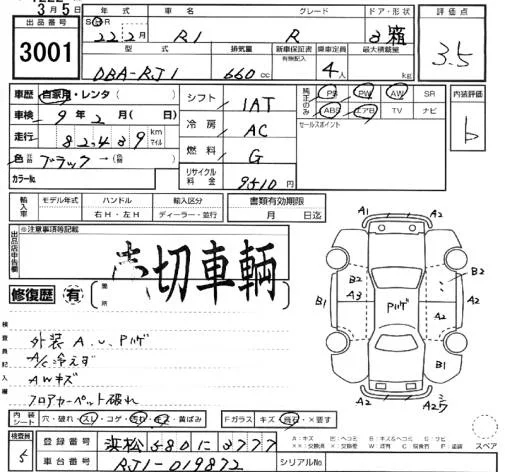 3月5日
年式 車名 グレード ドア・形状 評価点
出品番号
3001
S H R
22年2月 R1 R 3 箱
3.5
型式 排気量 新車保証書 乗車定員 最大積載量
有無記入
DBA-RJ1 660cc 4人 kg
車歴 自家用・レンタ( )
シフト IAT
純正のみ PS PW AW SR
ABS エアB TV ナビ
内装評価
b
車検 9年2月( 日)
冷房 AC
セールスポイント
走行 82,489 km マイル
燃料 G
色 ブラック→
カラーNo.
リサイクル料金 9510円
輸入車 モデル年式 ハンドル 輸入区分
右H・左H ディーラー・並行
書類有効期限
月 日迄
出品店申告欄
※注意事項等記載
売切車輌
修復歴 有 箇所
検査員記入欄
外装 A.U.Pハゲ
A/C冷えず
AWキズ
フロアカーペット破れ
A1 A2
B2 B2
A3
B1 Pハゲ A2 A2
B1
A2
内装シート 穴・破れ・スレ・コゲ・汚れ・黄ばみ
Fガラス キズ・飛石・×要す
検査員 5
登録番号 浜松580に3777
車台番号 RJ1-019872
シリアルNo.
A:キズ
スペア